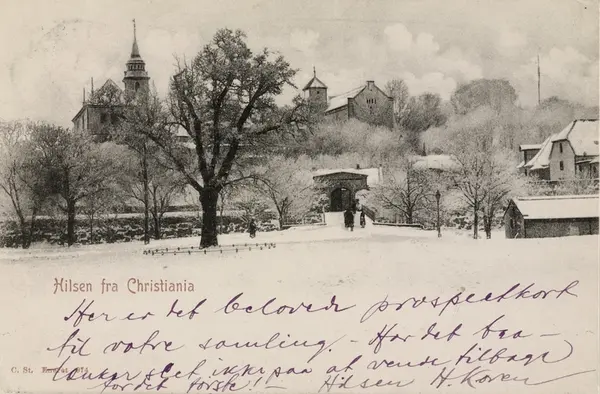 Hilsen fra Christiania
Her er det belovede prospectkort
til votre samling. – Har det bra –
tænker slet ikke paa at vende tilbage
for det første! – Hilsen H. Koren
C. St.